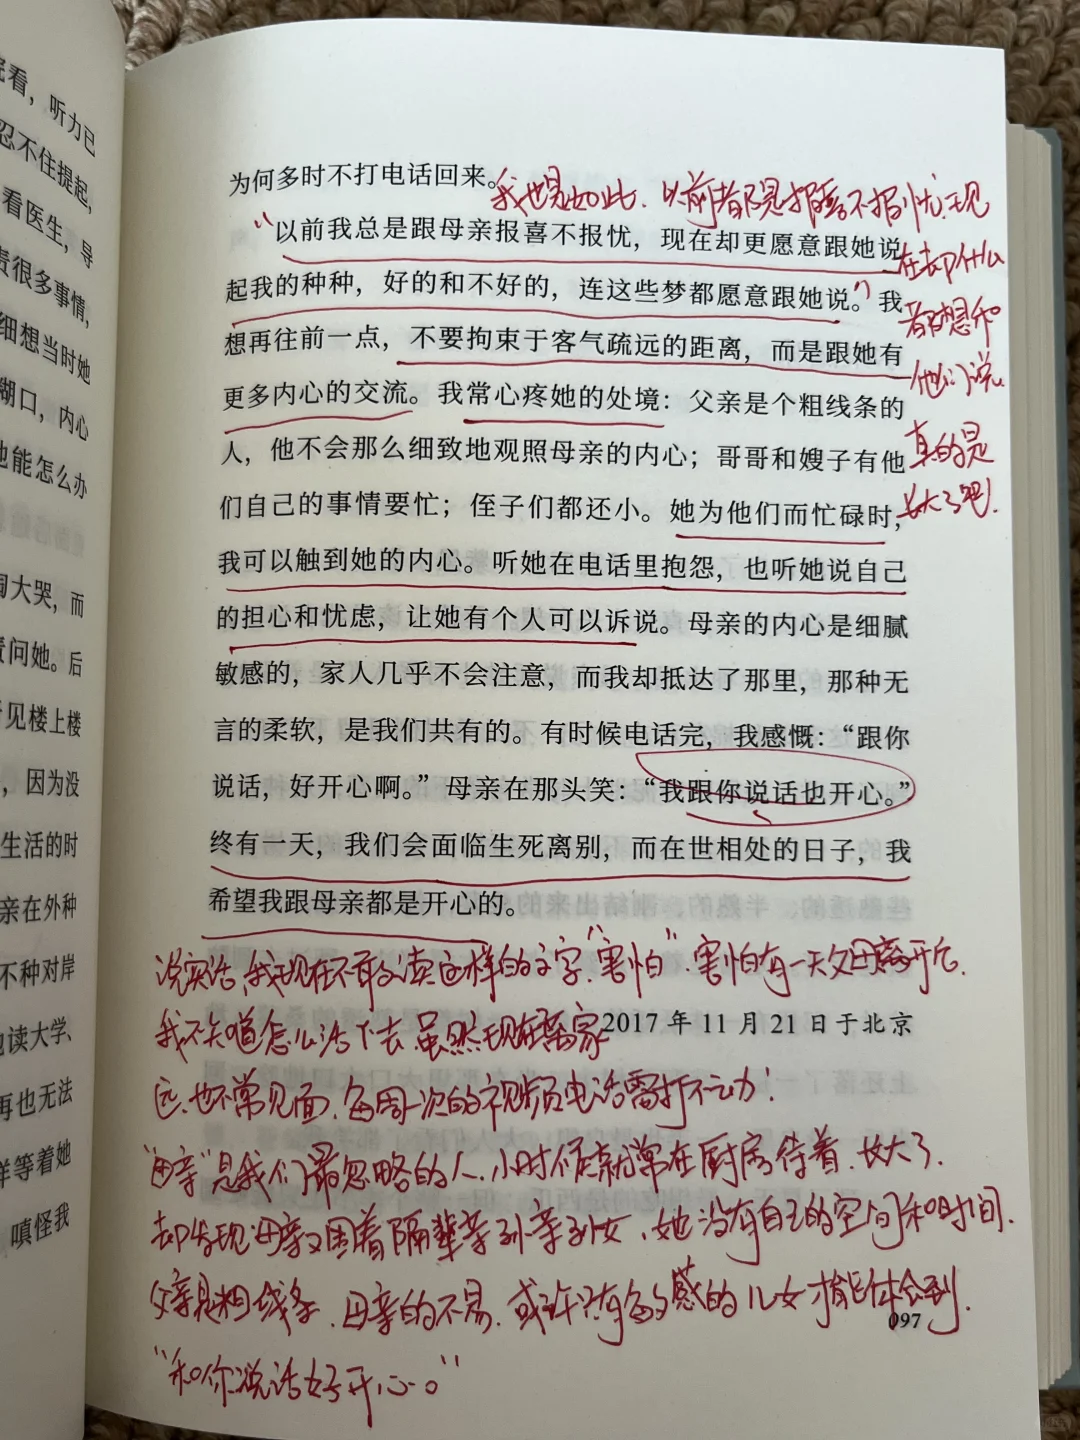 看，听力已
忍不住提起，
看医生，导
责很多事情，
细想当时她
糊口，内心
她能怎么办
大哭，而
责问她。后
见楼上楼
，因为没
生活的时
亲在外种
不种对岸
读大学、
再也无法
样等着她
嗔怪我
为何多时不打电话回来。
我也是如此，以前都是报喜不报忧，现
在却什么
都想和
他们说，
真的是
长大了吧！
“以前我总是跟母亲报喜不报忧，现在却更愿意跟她说
起我的种种，好的和不好的，连这些梦都愿意跟她说。”我
想再往前一点，不要拘束于客气疏远的距离，而是跟她有
更多内心的交流。我常心疼她的处境：父亲是个粗线条的
人，他不会那么细致地观照母亲的内心；哥哥和嫂子有他
们自己的事情要忙；侄子们都还小。她为他们而忙碌时，
我可以触到她的内心。听她在电话里抱怨，也听她说自己
的担心和忧虑，让她有个人可以诉说。母亲的内心是细腻
敏感的，家人几乎不会注意，而我却抵达了那里，那种无
言的柔软，是我们共有的。有时候电话完，我感慨：“跟你
说话，好开心啊。”母亲在那头笑：“我跟你说话也开心。”
终有一天，我们会面临生死离别，而在世相处的日子，我
希望我跟母亲都是开心的。
说实话，我现在不敢读这样的文字，“害怕”，害怕有一天父母离开后，
我不知道怎么活下去，虽然现在离家
2017 年 11 月 21 日于北京
远，也不常见面，每周一次的视频电话雷打不动！
“母亲”是我们最忽略的人，小时候就常在厨房待着，长大了，
却发现母亲又围着隔辈亲孙亲孙女，她没有自己的空间和时间，
父亲是粗线条，母亲的不易，或许只有多感的儿女才能体会到，
“和你说话好开心。”
097